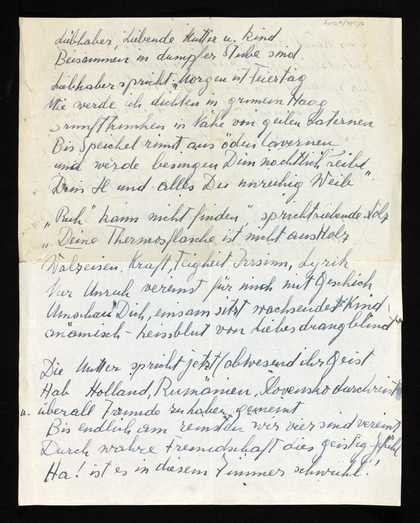 Liebhaber, Liebende Mutter u. Kind
Beisammen in dumpfer Stube sind.
Liebhaber spricht: "Morgen ist Feiertag
Wie werde ich dichten in grünem Haag
in Nähe von geilen Laternen
Bis Speichel rinnt aus öden Tavernen
und werde besingen Dein nächtlich
Dein und alles Du unruhig Weib"
"Ruh" kann nicht finden", spricht
"Deine Thermosflasche ist nicht aus Holz
Walzeisen, Kraft, Feigheit Irrsinn, Lyrik
Wer Unruh vereinst für mich mit Geschick
Umschau Dich, einsam sitzt wachsendes Kind
anämisch - heissblut von Liebesdrang blind
Die Mutter spricht jetzt (abwesend ihr Geist
Hab Holland, Rumänien, durchreist
u. überall Freunde zu haben gemeint
Bis endlich am wir vier sind vereint
Durch wahre Freundschaft dies geistig
Ha! ist es in diesem Zimmer schwühl!